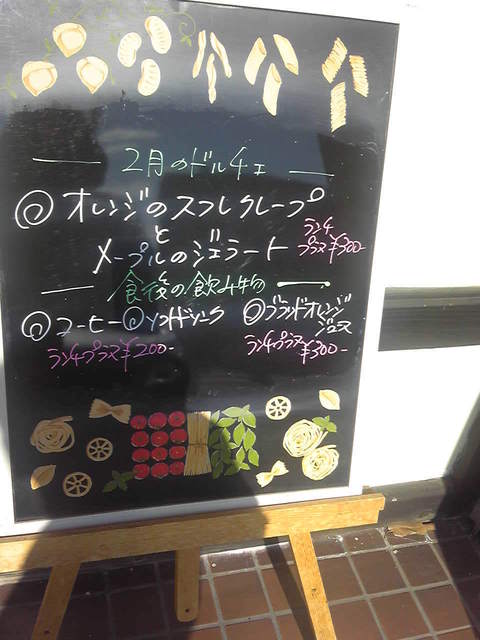 2月のドルチェ
◎オレンジのスフレクレープ
と
メープルのジェラート
ランチ
プラス¥300-
食後の飲み物
◎コーヒー◎ソフトドリンク
ランチプラス¥200-
◎ブラッドオレンジ
ジュース
ランチプラス¥300-